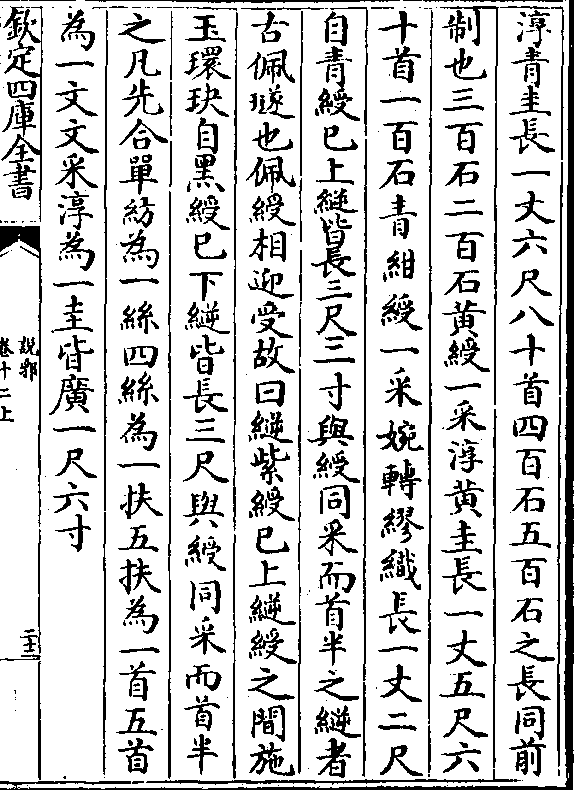 淳青圭長一丈六尺八十首四百石五百石之長同前
制也三百石二百石黃綬一采淳黃圭長一丈五尺六
十首一百石青紺綬一采婉轉繆織長一丈二尺
自青綬已上縌皆長三尺三寸與綬同采而首半之縌者
古佩璲也佩綬相迎受故曰縌紫綬已上縌綬之間施
玉環玦自黑綬已下縌皆長三尺與綬同采而首半
之凡先合單紡為一絲四絲為一扶五扶為一首五首
為一文文采淳為一圭皆廣一尺六寸
欽定四庫全書
說郛
卷十二上
二十三